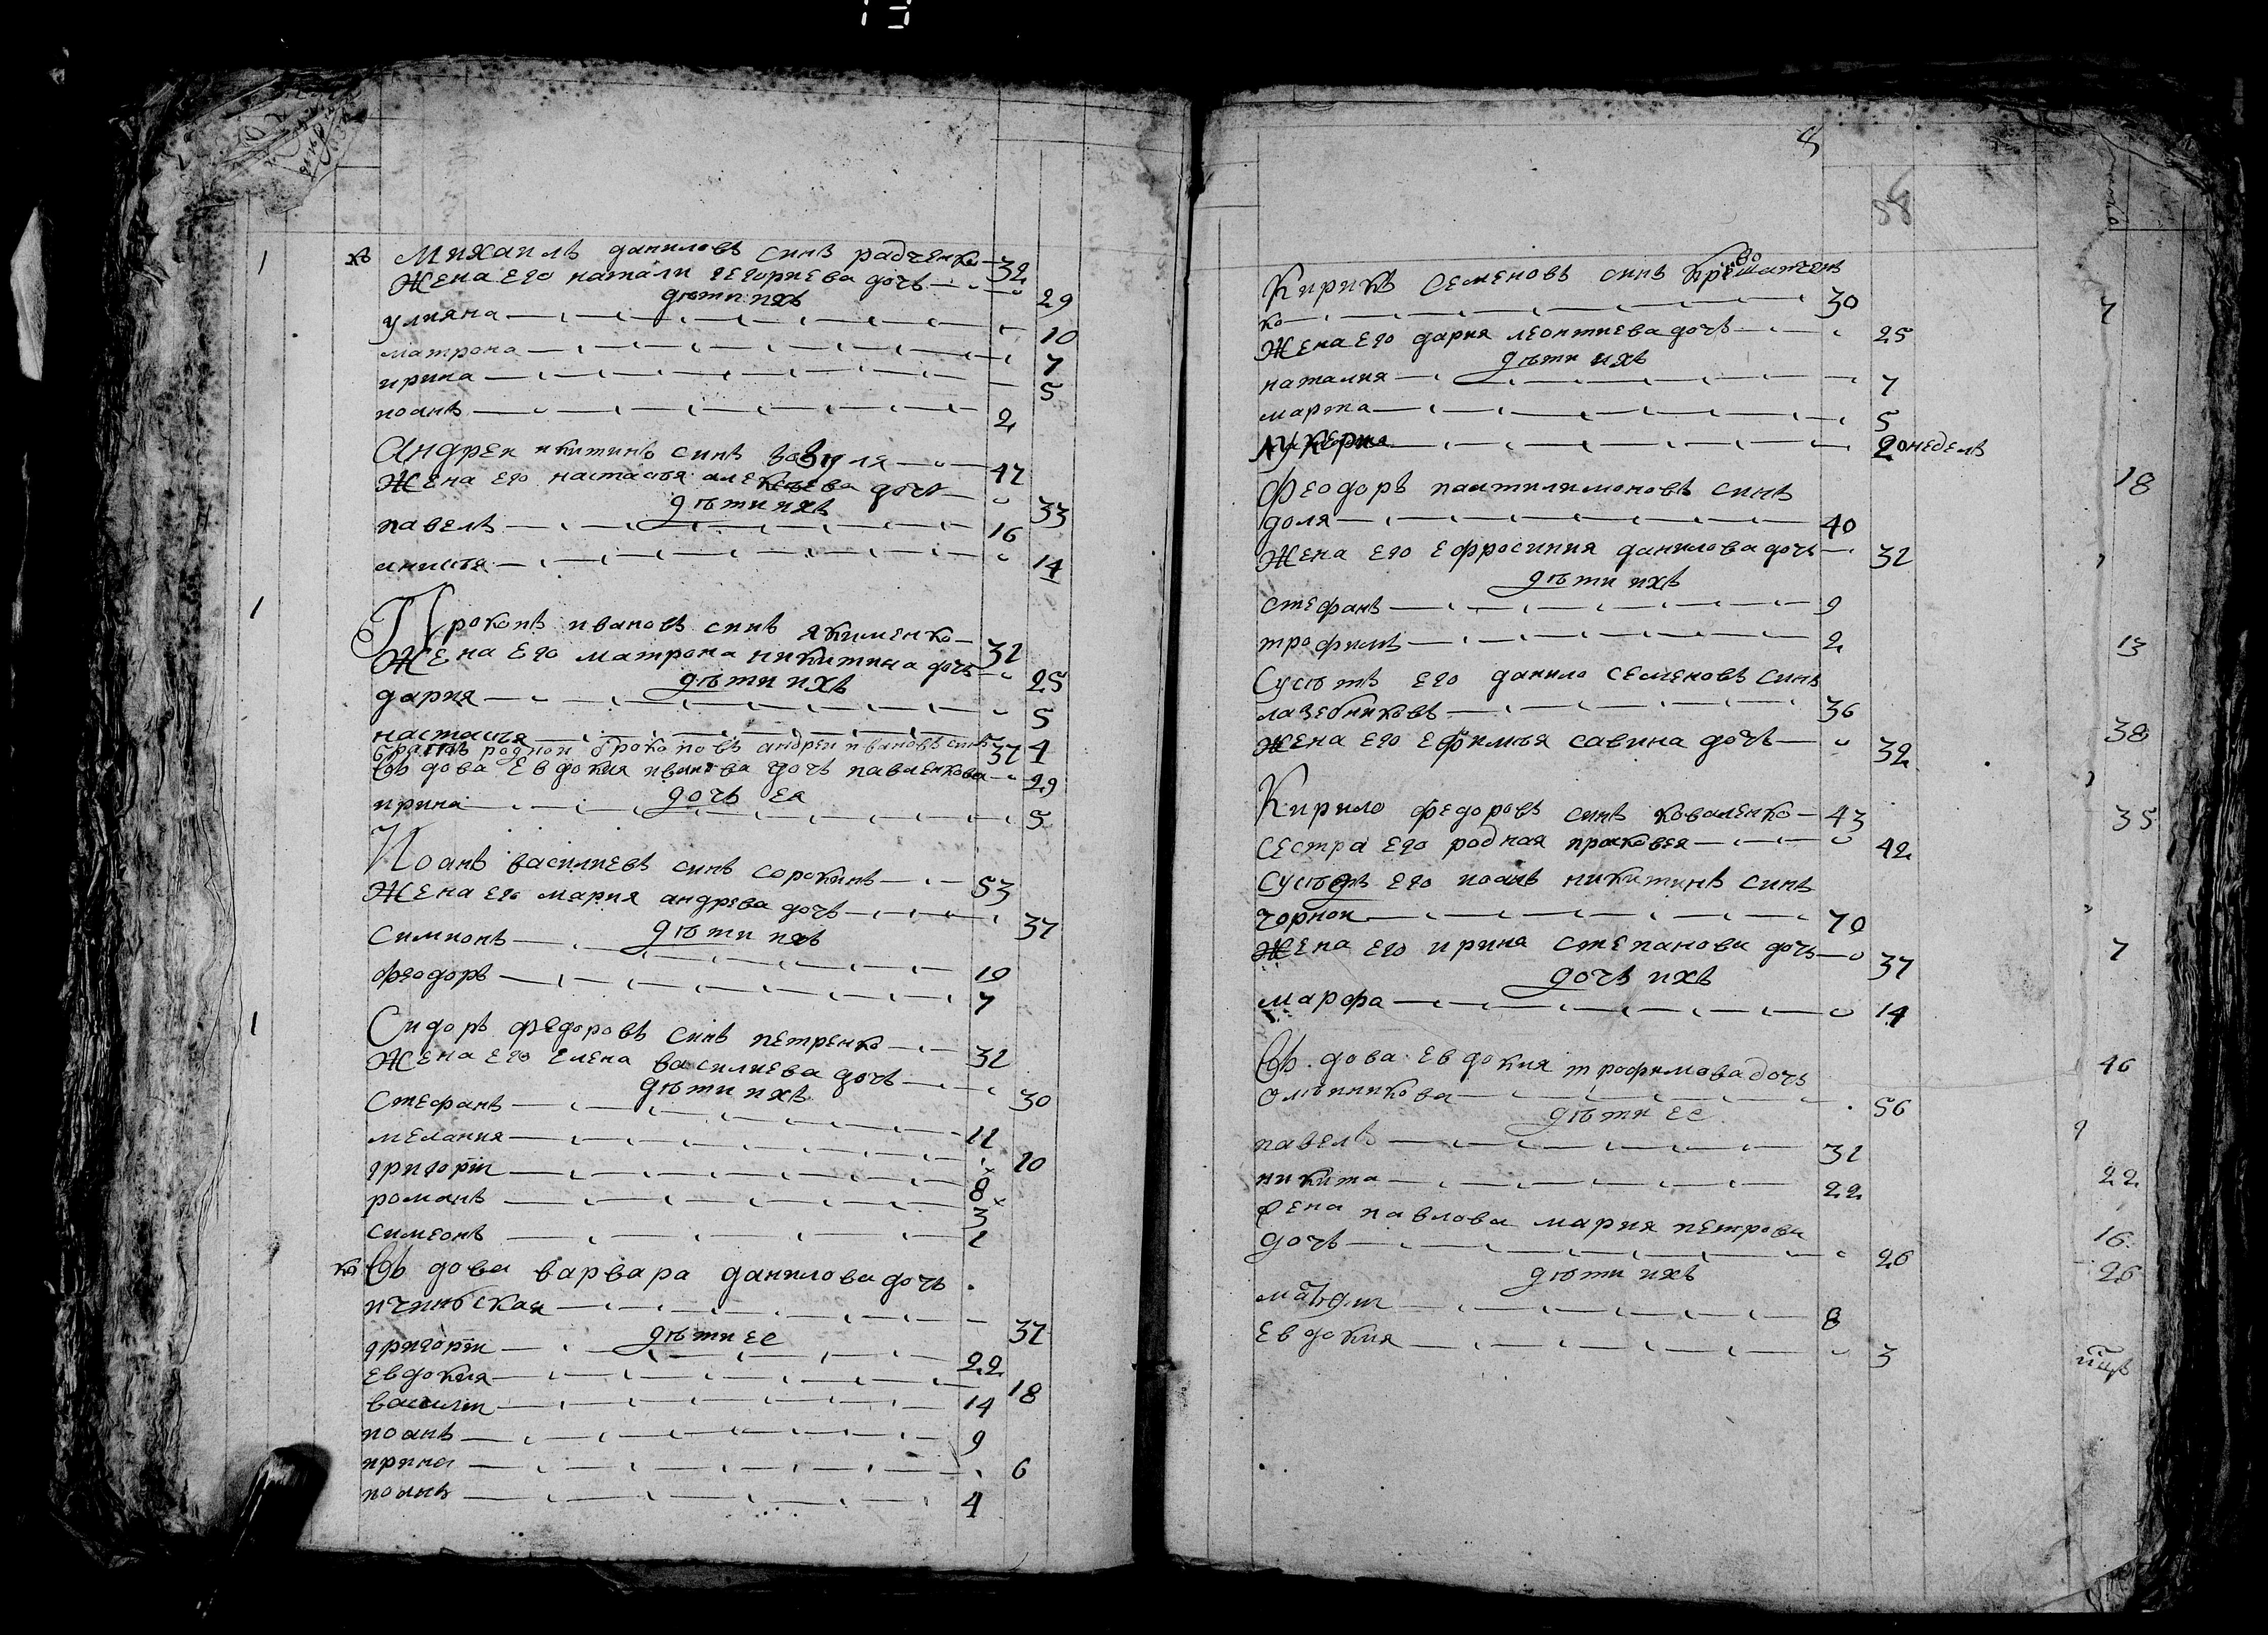 8
58
1
Михаилъ даниловъ синъ радченко 32
Жена его натали егориева дочъ 29
дѣти ихъ
улияна 10
матрона 7
ирина 5
иоанъ 2
Андреи никитинъ синъ 47
Жена его настасѣя алексѣева дочъ 33
дѣти ихъ
павелъ 16
анисѣя 14
1
Прокопъ ивановъ синъ якименко 32
Жена его матрона никитина дочъ 25
дѣти ихъ
дария 5
настасѣя 4
братъ роднои прокоповъ андреи ивановъ синъ 37
Въдова Евдокия иванова дочъ павленкова 29
дочъ ея
ирина 5
Иоанъ василиевъ синъ сорокинъ 53
Жена его мария андрѣева дочъ 37
дѣти ихъ
симионъ 10
феодоръ 7
1
Сидоръ федоровъ синъ петренко 32
Жена его Елена василиева дочъ 30
дѣти ихъ
Стефанъ 11
мелания 10
григории 8
романъ 3
симеонъ 1
Въдова варвара данилова дочъ
ичинская 37
дѣти ее
григории 22
евдокия 18
василии 14
иоанъ 9
ирина 6
иоанъ 4
Кирикъ Семеновъ синъ
ко 30
Жена его дария леонтиева дочъ 25
дѣти ихъ
наталия 7
марта 5
лукерия 20 неделъ
Феодоръ пантилимоновъ синъ
доля 40
Жена его Ефросиния данилова дочъ 32
дѣти ихъ
стефанъ 9
трофимъ 2
Сусѣтъ его данило семеновъ синъ
лазебниковъ 36
Жена его Ефимѣя савина дочъ 32
Кирило федоровъ синъ коваленко 43
сестра его родная праковея 42
Сусѣдъ его иоанъ никитинъ синъ
чорнои 70
Жена его ирина степанова дочъ 37
дочъ ихъ
марфа 14
Въдова Евдокия трофимова дочъ
олѣиникова 56
дѣти ее
павелъ 32
никита 22
Жена павлова мария петрова
дочъ 26
дѣти ихъ
матфии 8
Евдокия 3
7
18
13
38
35
7
46
22
16
26